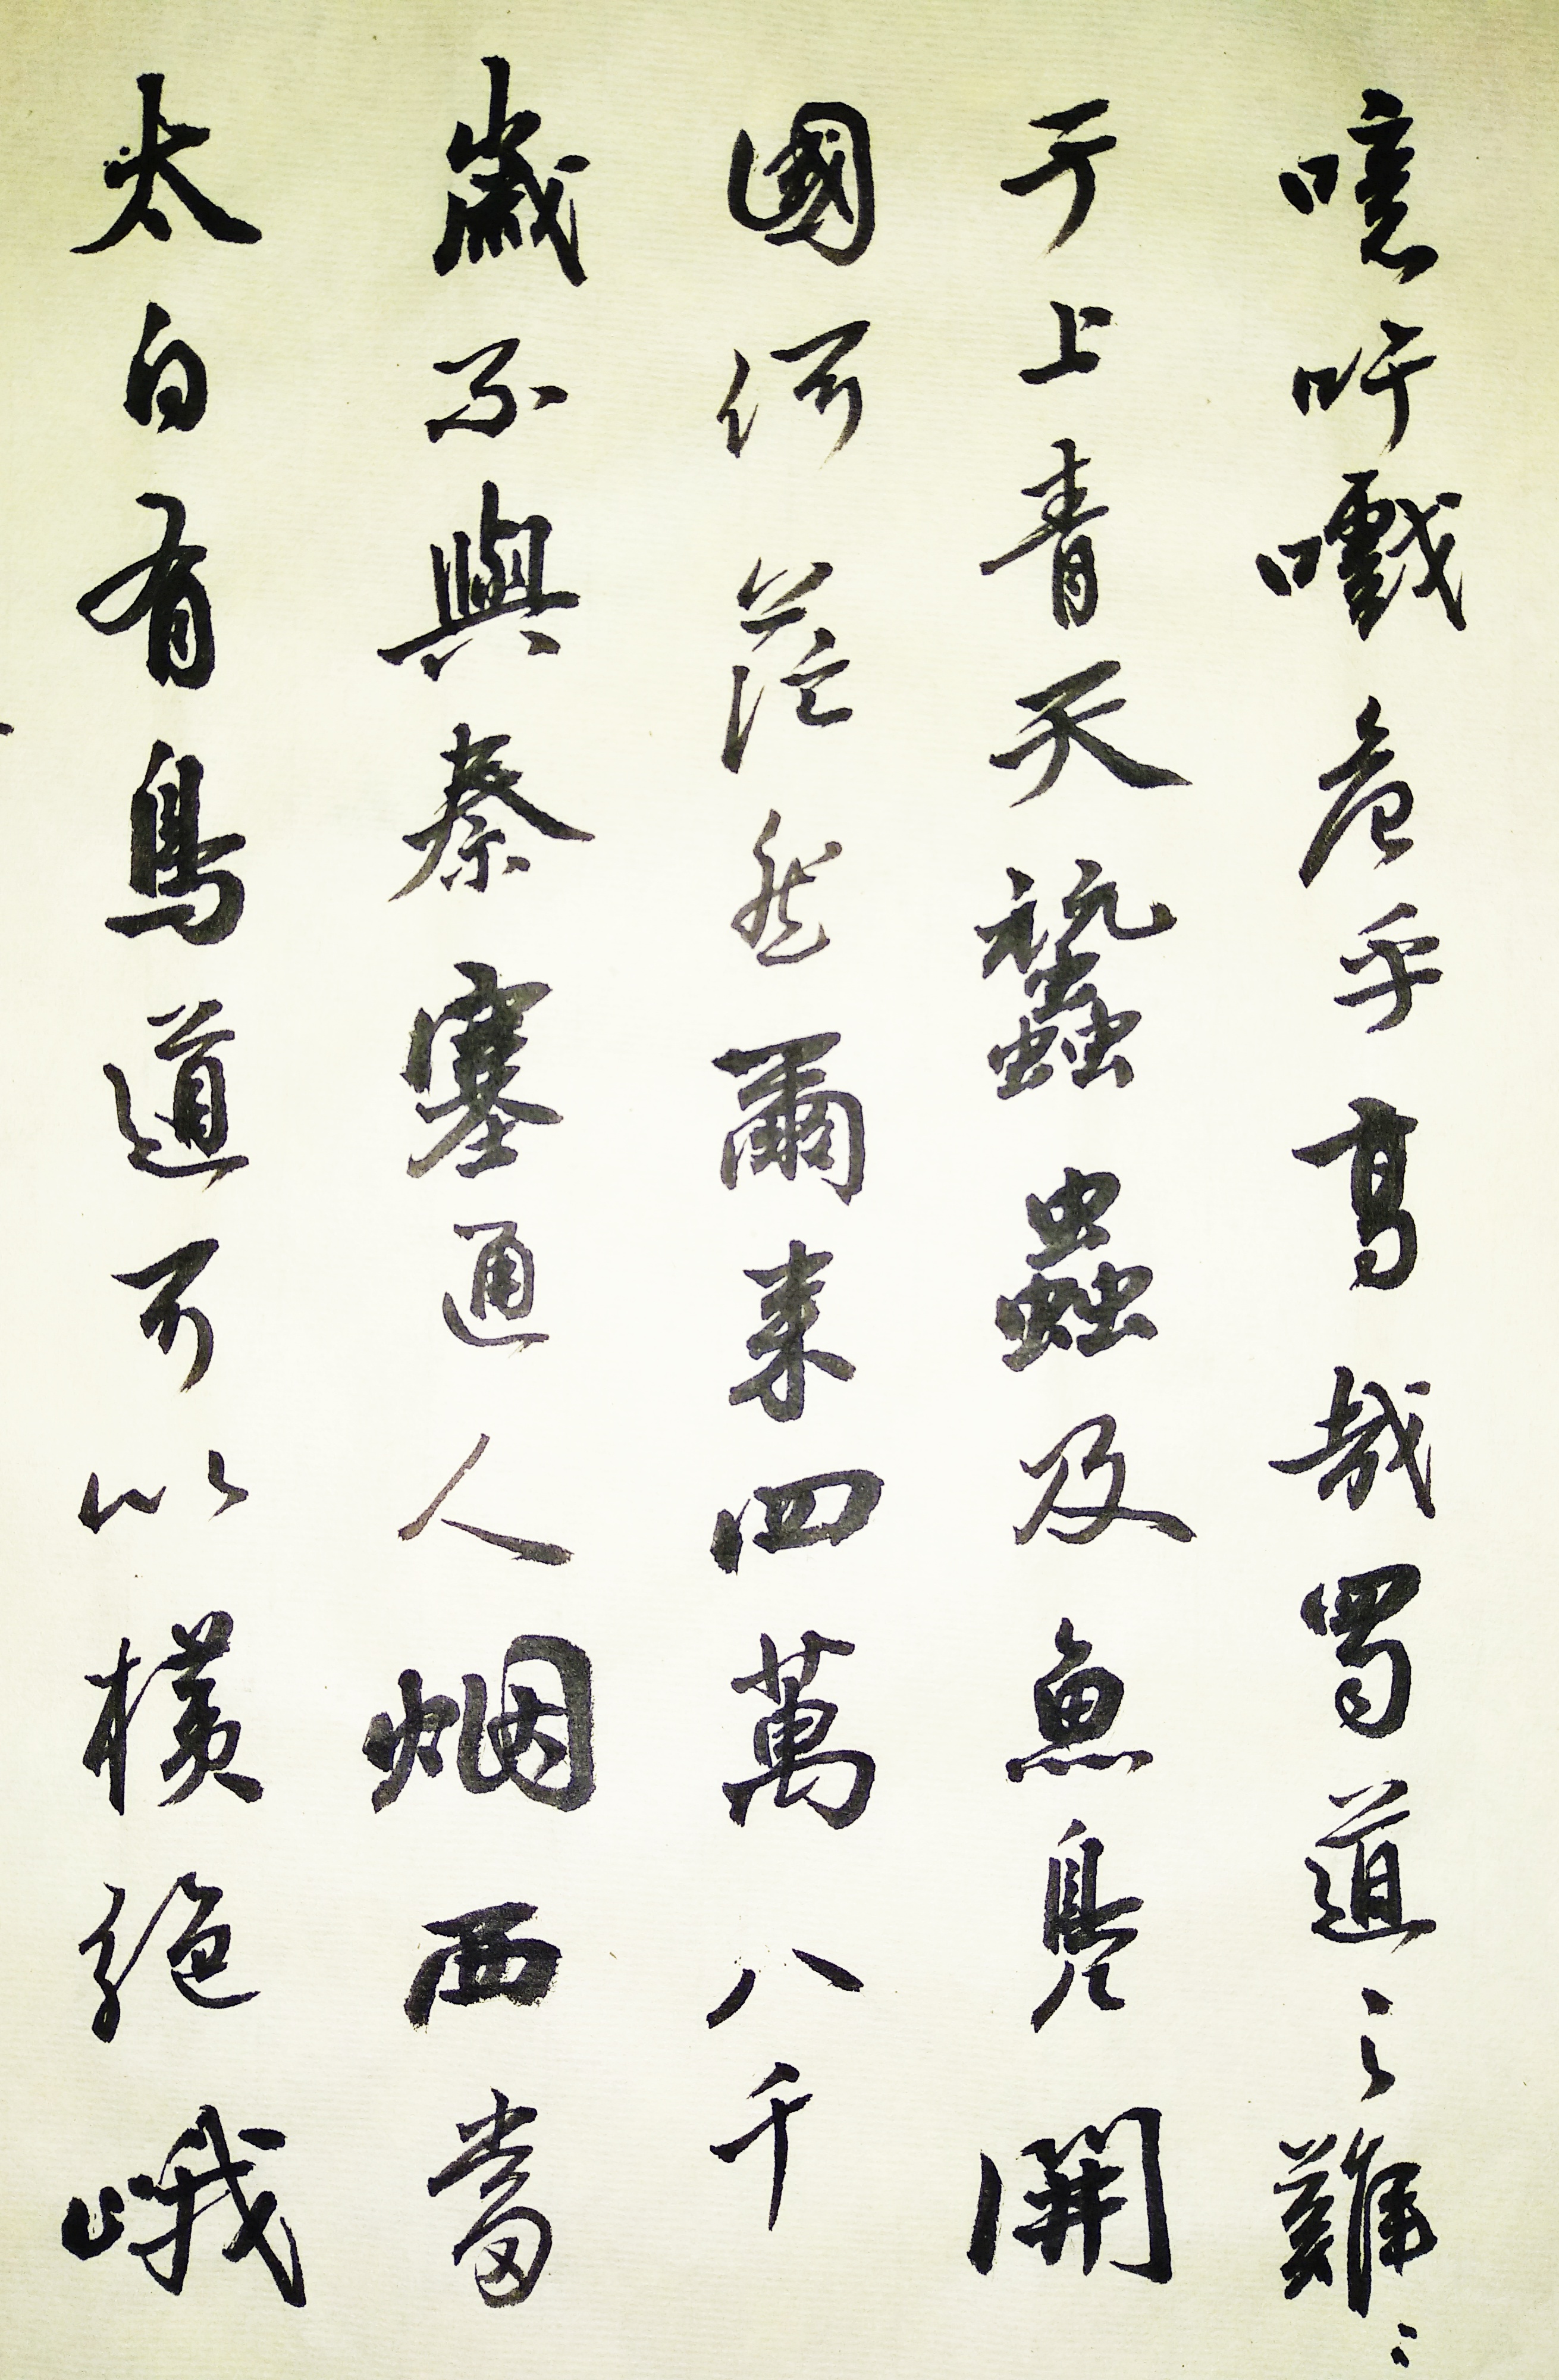 噫吁嚱危乎高哉蜀道之難〻
于上青天蠶蟲及魚鳧開
國何茫然爾来四萬八千
歲不與秦塞通人烟西當
太白有鳥道可以横絶峨